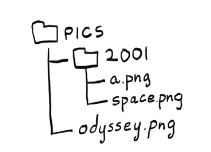 PICS
2001
a.png
space.png
odyssey.png